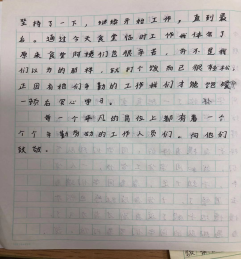 坚持了一下，继续走始工作，直到最
后。通过今天食堂临时工作我体会了
原来食堂阿姨们也很辛苦，并不是我
们以为的那样，以打个饭而已很轻松，
正因有他们辛勤的工作我们才能饱餐
一顿后安心学习。
每一个平凡的岗位上都有着一个
个辛勤劳动的工作人员们。向他们
致敬。